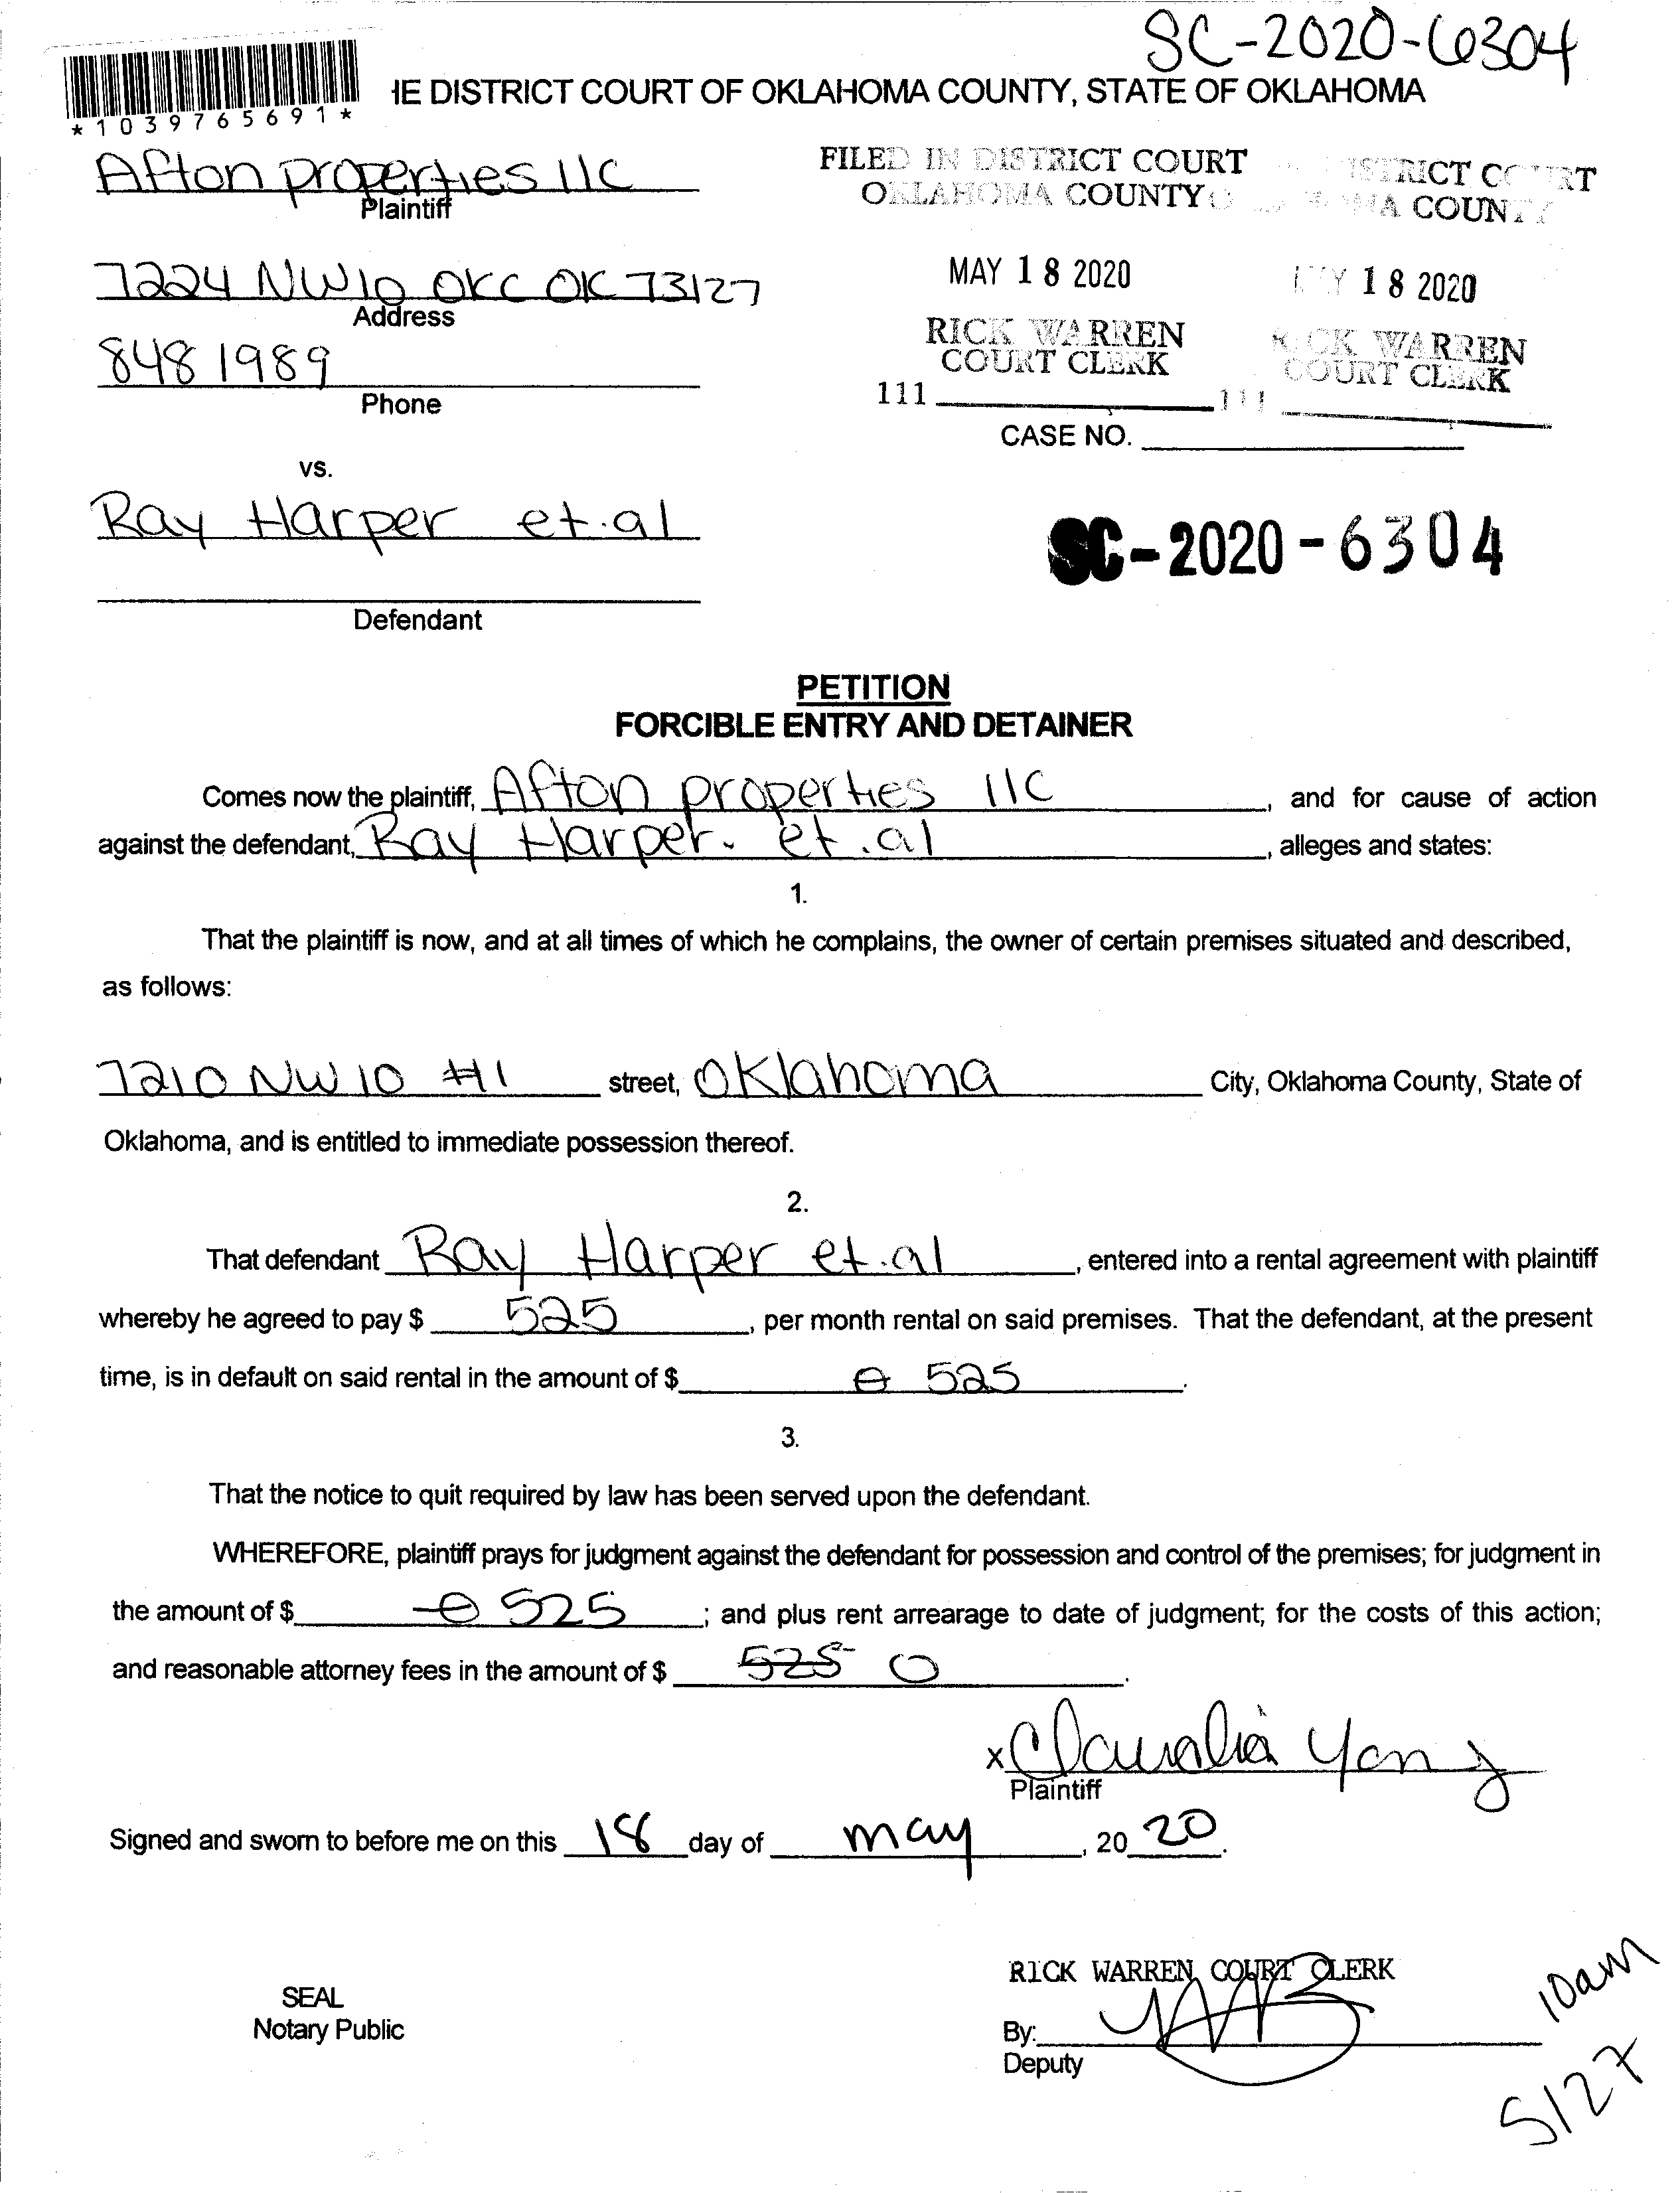 SC-2020-6304
*1039765691*
IE DISTRICT COURT OF OKLAHOMA COUNTY, STATE OF OKLAHOMA
Afton properties llc
Plaintiff
FILED IN DISTRICT COURT
OKLAHOMA COUNTY
ISTRICT COURT
MA COUNTY
7224 NW10 OKC OK 73127
Address
MAY 18 2020
MAY 18 2020
848 1989
Phone
RICK WARREN
COURT CLERK
RICK WARREN
COURT CLERK
111
111
CASE NO.
vs.
Ray Harper et.al
SC-2020-6304
Defendant
PETITION
FORCIBLE ENTRY AND DETAINER
Comes now the plaintiff, Afton properties llc, and for cause of action
against the defendant, Ray Harper. et.al, alleges and states:
1.
That the plaintiff is now, and at all times of which he complains, the owner of certain premises situated and described,
as follows:
7210 NW 10 #1 street, Oklahoma City, Oklahoma County, State of
Oklahoma, and is entitled to immediate possession thereof.
2.
That defendant Ray Harper et.al, entered into a rental agreement with plaintiff
whereby he agreed to pay $ 525, per month rental on said premises. That the defendant, at the present
time, is in default on said rental in the amount of $ 0 525.
3.
That the notice to quit required by law has been served upon the defendant.
WHEREFORE, plaintiff prays for judgment against the defendant for possession and control of the premises; for judgment in
the amount of $ 0 525; and plus rent arrearage to date of judgment; for the costs of this action;
and reasonable attorney fees in the amount of $ 525 0.
x Claudia Yang
Plaintiff
Signed and sworn to before me on this 18 day of may, 20 20.
RICK WARREN, COURT CLERK
SEAL
Notary Public
By:
Deputy
10am
5/27